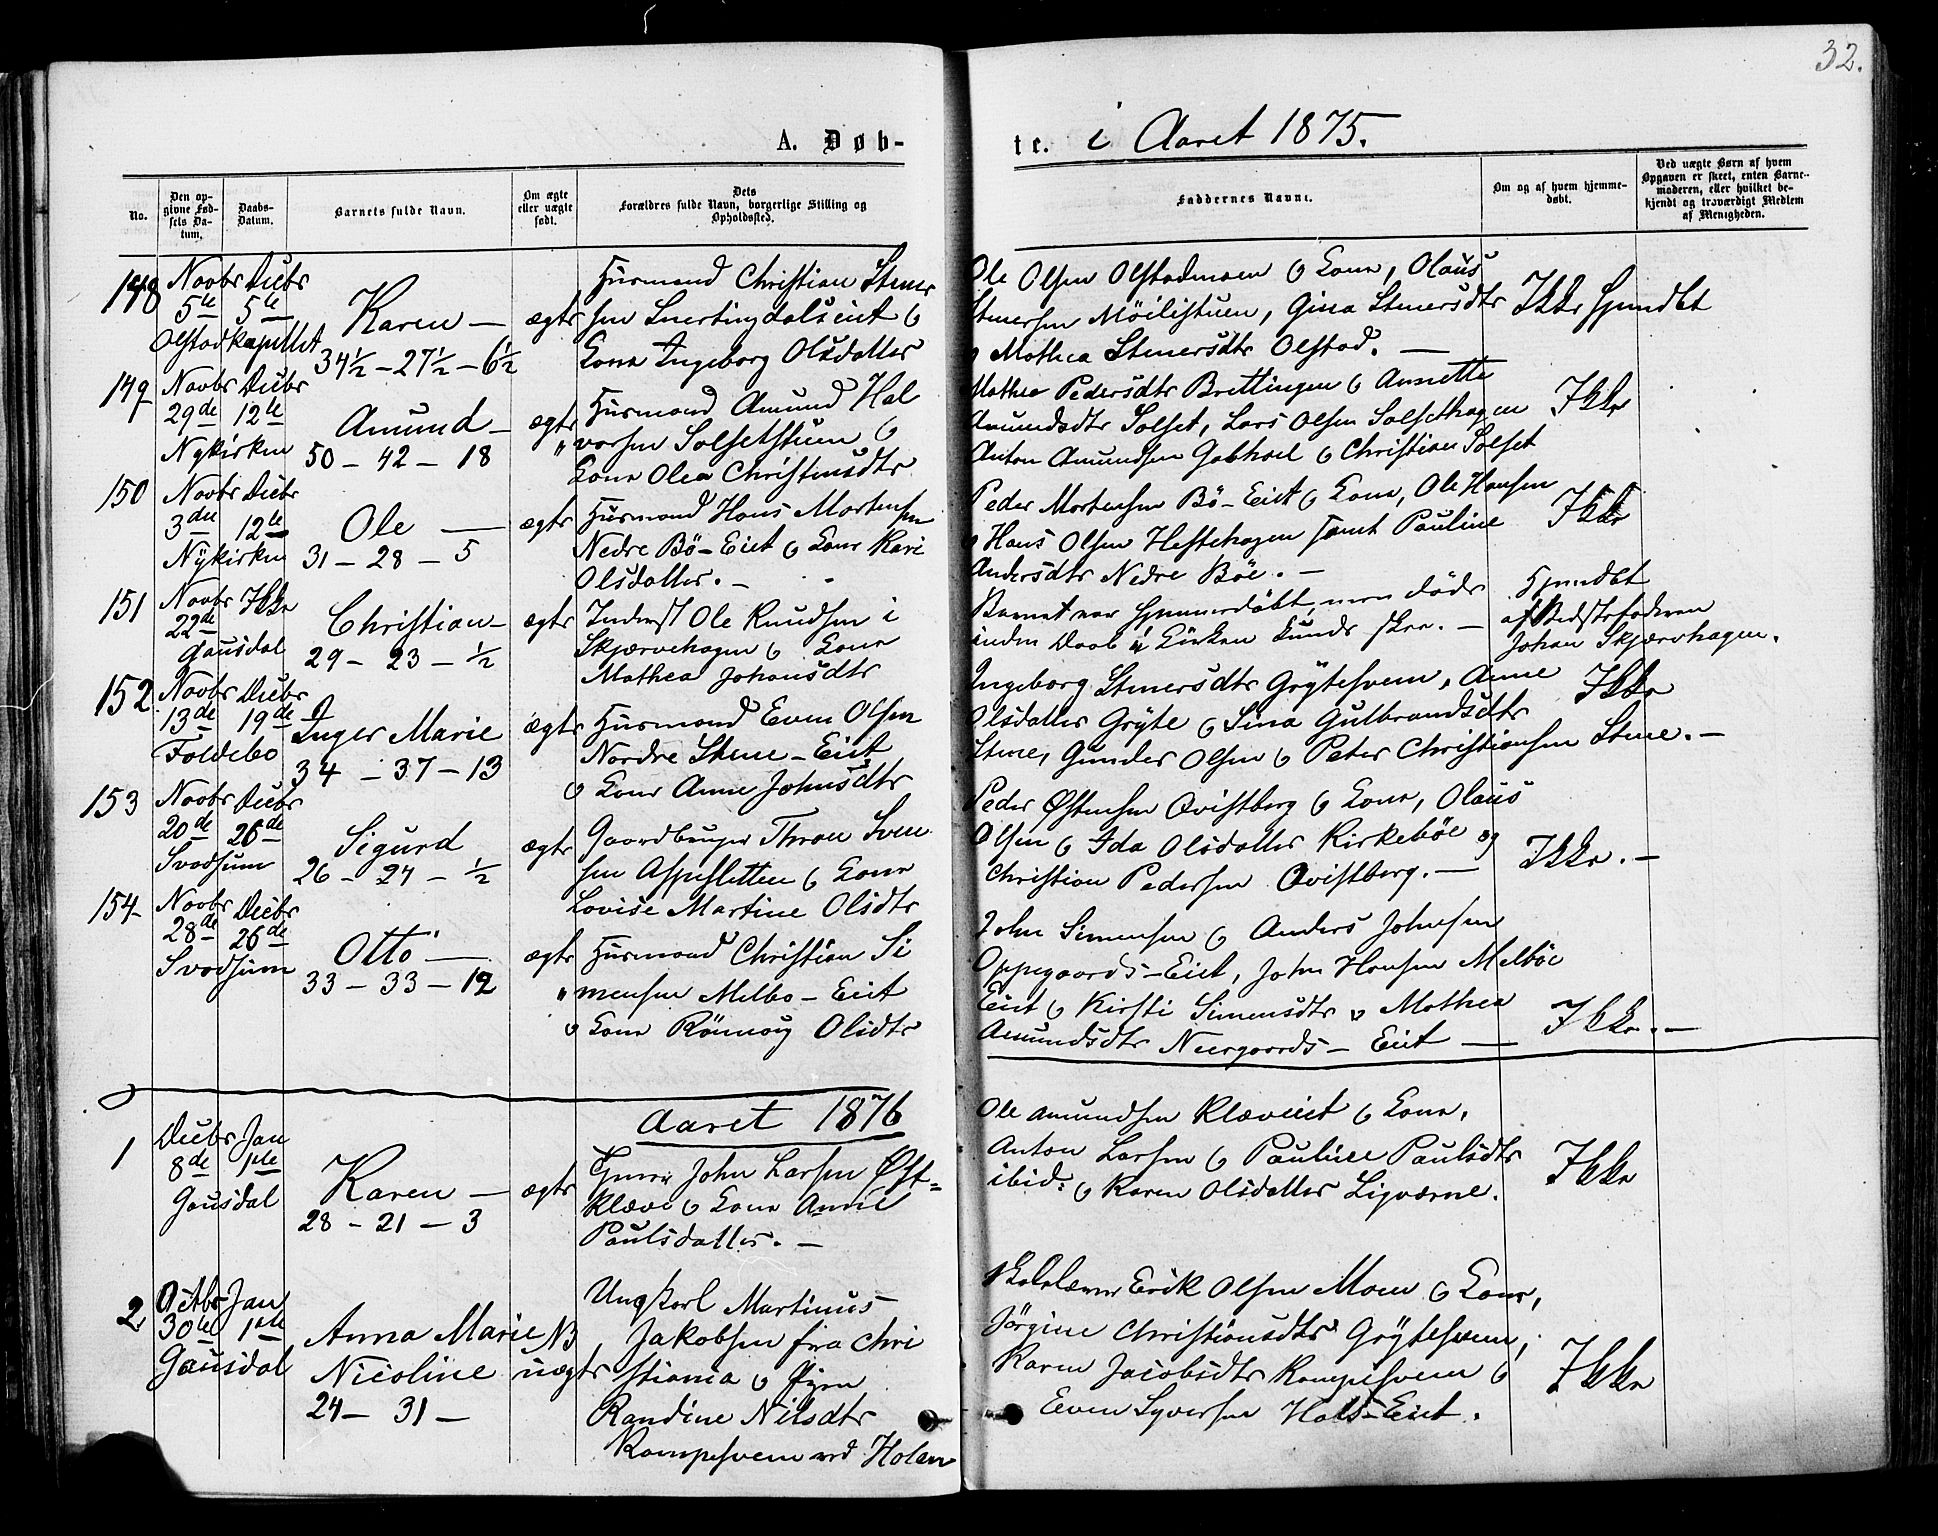 32.
A. Døb-
te. i Aaret 1875.
No.
Den op-
givne Fød-
sels Da-
tum.
Daabs-
Datum.
Barnets fulde Navn.
Om ægte
eller uægte
født.
Dets
Forældres fulde Navn, borgerlige Stilling og
Opholdssted.
Faddernes Navne.
Om og af hvem hjemme-
døbt.
Ved uægte Børn af hvem
Opgaven er skeet, enten Barne-
moderen, eller hvilket be-
kjendt og troværdigt Medlem
af Menigheden.
148
Novbr Decbr
5te 5te
Olstadkapellet
Karen —
34½ – 27½ – 6½
ægte
Husmand Christian Stener
sen Snertingdalseiet &
Kone Ingeborg Olsdatter
Ole Olsen Olstadmoen & Kone, Olaus
Stenersen Möilistuen, Gina Stenersdtr
& Mathea Stenersdtr Olstad. —
Ikke hjemdbt
149
Novbr Decbr
29de 12te
Nykirken
Amund —
50 – 42 – 18
ægte
"
Husmand Amund Hal
vorsen Solsetstuen &
Kone Olea Christensdtr
Mathea Pedersdtr Brettingen & Annette
Amundsdtr Solset, Lars Olsen Solsethagen
Anton Amundsen & Christian Solset
Ikke
150
Novbr Decbr
3die 12te
Nykirken
Ole —
31 – 28 – 5
ægte
Husmand Hans Mortensen
Nedre Bö-Eiet & Kone Kari
Olsdatter. —
Peder Mortensen Bö-Eiet & Kone, Ole Hansen
& Hans Olsen Heftehagen samt Pauline
Andersdtr Nedre Böe. —
Ikke
151
Novbr Ikke
22de
Gausdal
Christian —
29 – 23 – ½
ægte
Inderst Ole Knudsen i
Skjærvehagen & Kone
Mathea Johansdtr
Barnet var hjemmedöbt, men döde
inden Daab i Kirken kunde skee. —
Hjemdbt
af Bedstefaderen
Johan Skjærvhagen.
152
Novbr Decbr
13de 19de
Foldebo
Inger Marie
34 – 37 – 13
ægte
Husmand Even Olsen
Nordre Stene-Eiet
& Kone Anne Johnsdtr
Ingeborg Stenersdtr Grytesveen, Anne
Olsdatter Gryte & Sina Gulbrandsdtr
Stene, Gunder Olsen & Peter Christiansen Stene. —
Ikke
153
Novbr Decbr
20de 26de
Svadsum
Sigurd
26 – 24 – ½
ægte
Gaardbruger Thron Sven
sen Aspesletten & Kone
Lovise Martine Olsdtr
Peder Østensen Qvistberg & Kone, Olaus
Olsen & Ida Olsdatter Kirkeböe og
Christian Pedersen Qvistberg. —
Ikke. —
154
Novbr Decbr
28de 26de
Svadsum
Otto —
33 – 33 – 12
ægte
"
Husmand Christian Si
mensen Melbo-Eiet
& Kone Rönnoug Olsdtr
John Simensen & Anders Johnsen
Oppegaards-Eiet, John Hansen Melböe
Eiet & Kirsti Simensdtr & Mathea
Amundsdtr Neergaards-Eiet —
Ikke. —
Aaret 1876
1
Decbr Jan
8de 1ste
Gausdal
Karen —
28 – 21 – 3
ægte
John Larsen Øst-
Klæve & Kone Anne
Paulsdatter. —
Ole Amundsen Klæveiet & Kone,
Anton Larsen & Pauline Paulsdtr
ibid: & Karen Olsdatter Ligværne.
Ikke
2
Octbr Jan
30te 1ste
Gausdal
Anna Marie
Nicoline
24 – 31 –
NB
uægte
Ungkarl Martinus
Jakobsen fra Chri
stiania & Pigen
Randine Nilsdtr
Rompesveen ved Holen
Skolelærer Erik Olsen Moen & Kone,
Jörgine Christiansdtr Grytesveen,
Karen Jacobsdtr Rompesveen &
Even Syversen Hols-Eiet.
Ikke